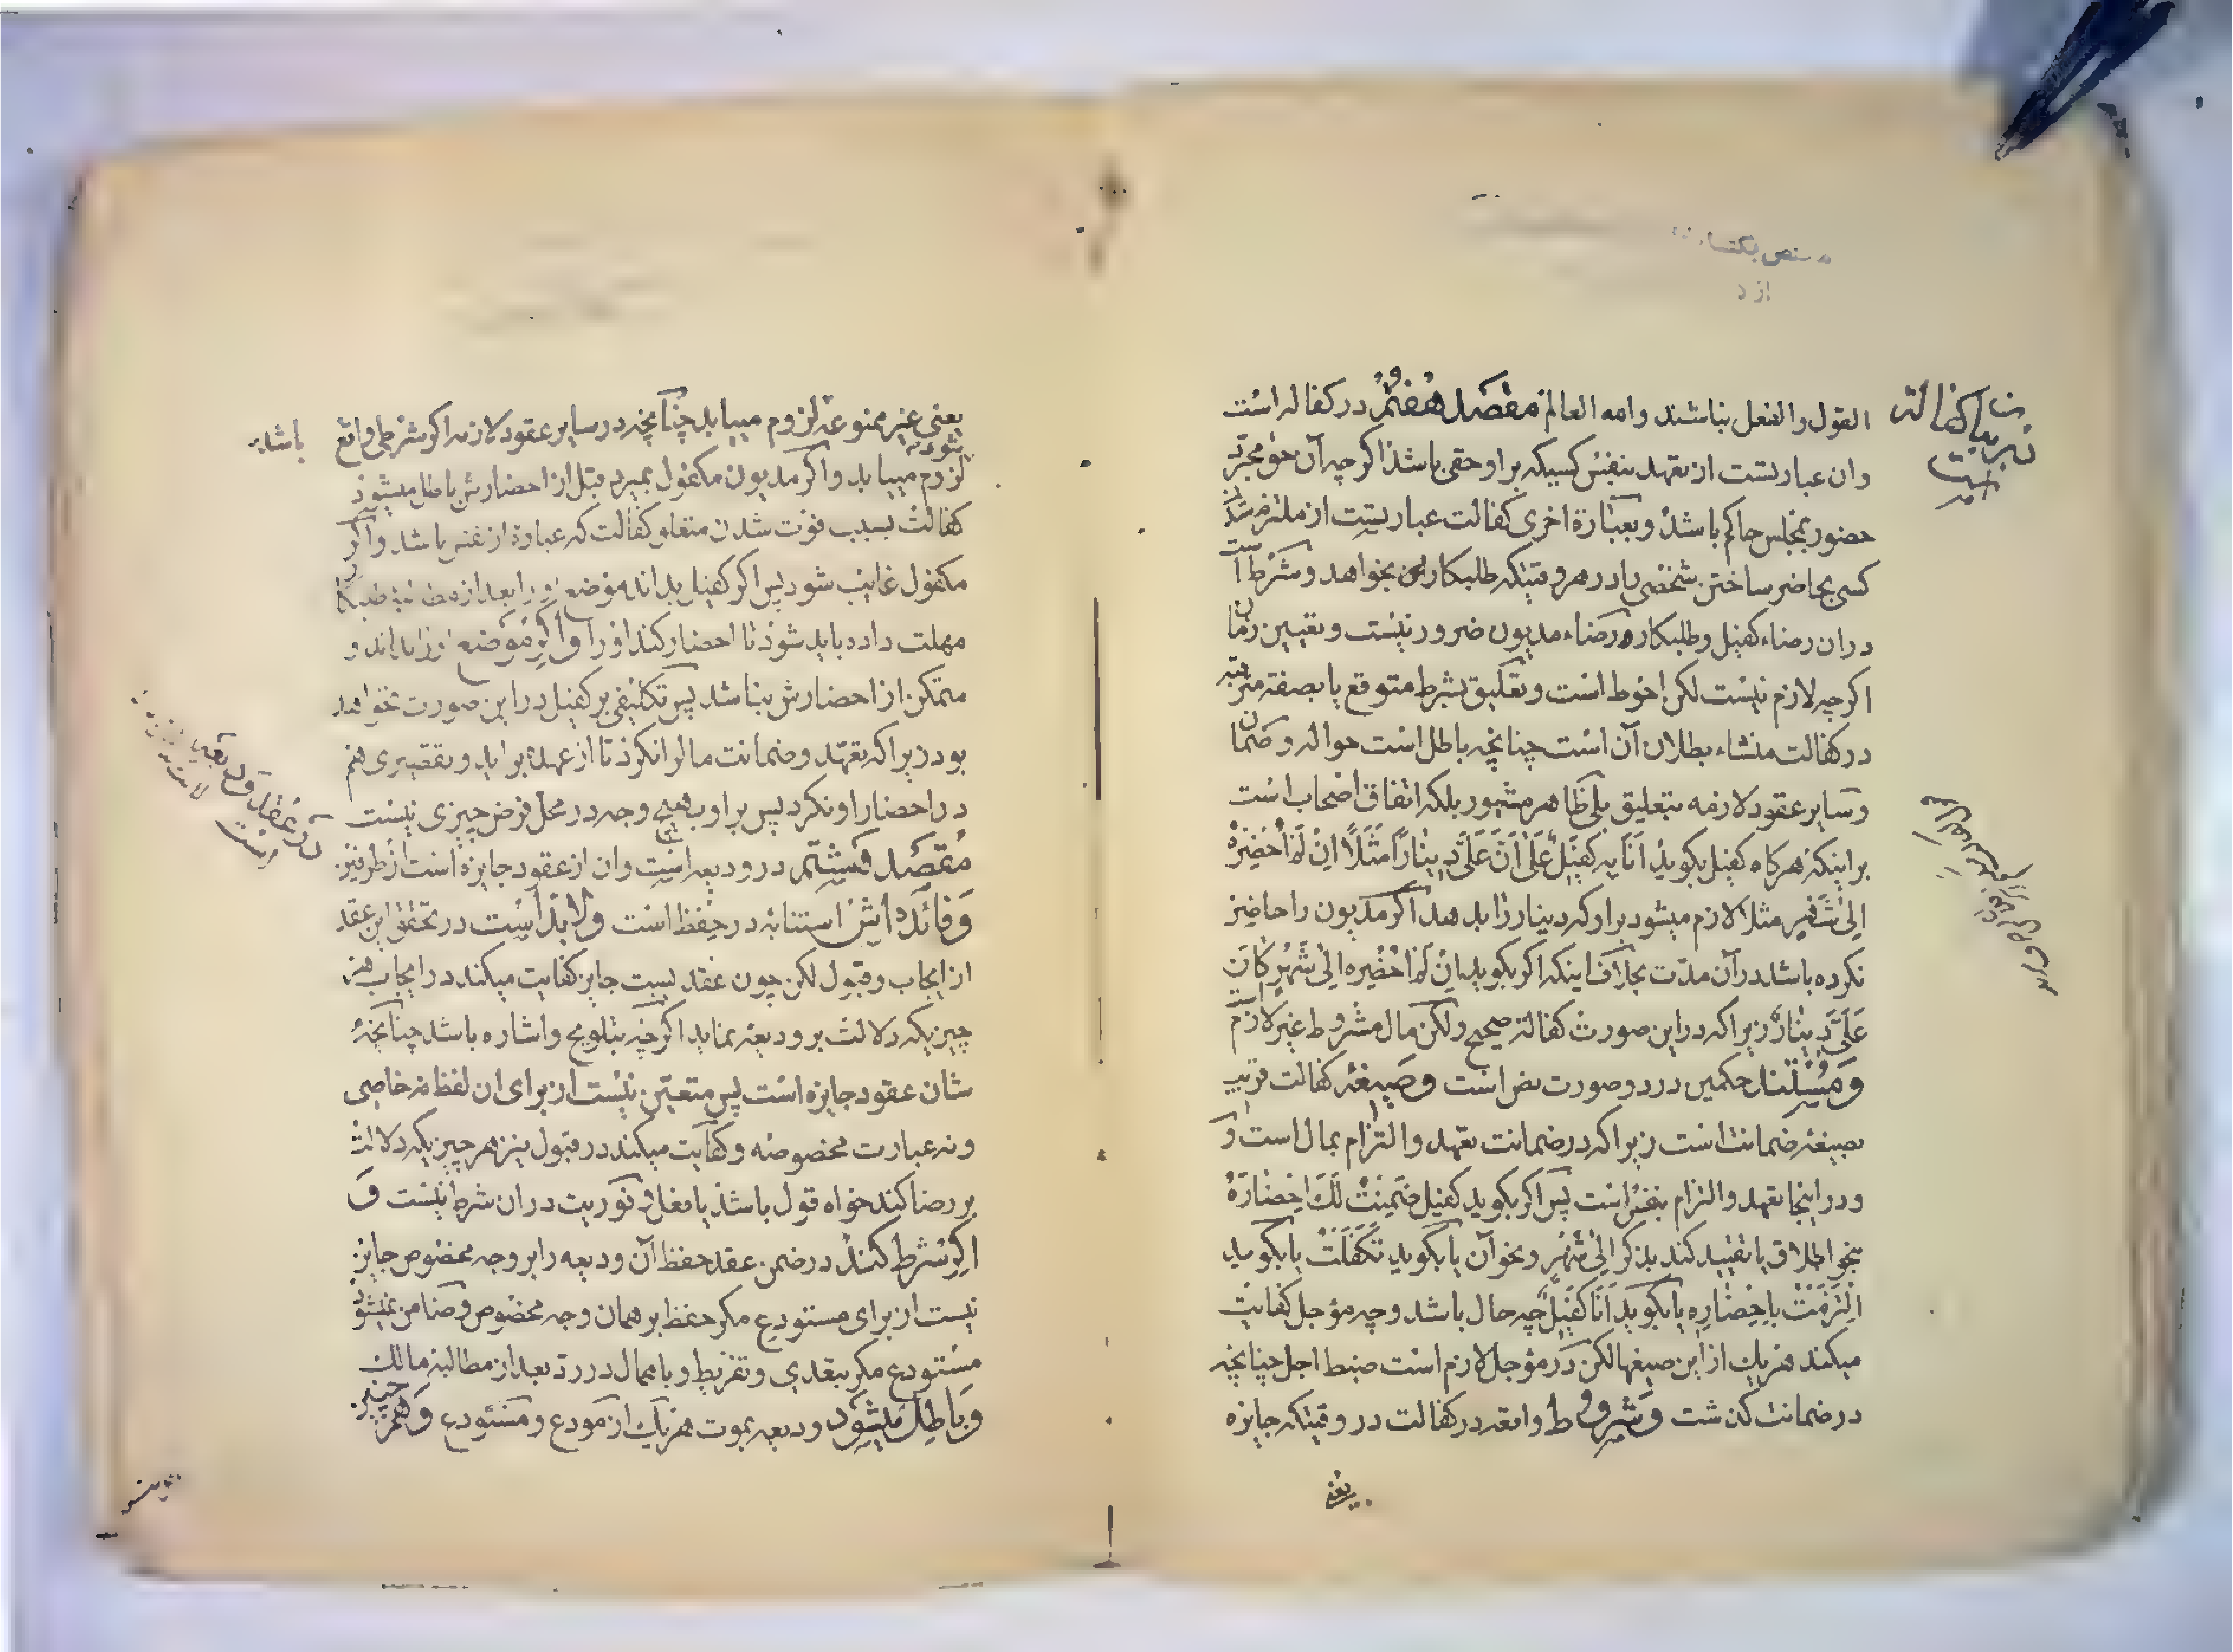 القول والفعل نباشند والله العالم مقصد هفتم در کفاله است
وان عبارتست از تعهد بنفس کسیکه بر او حقی باشد اکرچه آن حق مجرد
حضور بمجلس حاکم باشد وبعبارة اخری کفالت عبارتست از ملتزم شدن
کسی بحاضر ساختن شخصی را در هر وقتیکه طلبکار بخواهد وشرط است
در ان رضاء کفیل وطلبکار ورضاء مدیون ضرور نیست وتعیین زمان
اکرچه لازم نیست لکن احوط است وتعلیق بشرط متوقع یا بصفة مترقبه
در کفالت منشاء بطلان آن است چنانچه باطل است حواله وضمان
وسایر عقود لازمه بتعلیق بلی ظاهر مشهور بلکه اتفاق اصحاب است
بر اینکه هرکاه کفیل بکوید اَنَا بِهِ کَفیلٌ عَلیٰ اَنَّ عَلَیَّ دینٰاراً مَثَلاً اِنْ لَمْ اُحْضِرْهُ
اِلیٰ شَهْرٍ مثلا لازم میشود بر او که دینار را بدهد اکر مدیون را حاضر
نکرده باشد در آن مدّت بخلاف اینکه اکر بکوید اِنْ لَمْ اُحْضِرْه اِلیٰ شَهْرٍ کٰانَ
عَلَیَّ دینٰارٌ زیرا که در این صورت کفالة صحیح ولکن مال مشروط غیر لازم است
وَمُسْتَنَد حکمین در دو صورت نص است وصیغهٔ کفالت قریب
بصیغهٔ ضمانت است زیرا که در ضمانت تعهد والتزام بمال است و
ودر اینجا تعهد والتزام بنفس است پس اکر بکوید کفیل ضَمِنْتُ لَكَ اِحْضٰارَهُ
بنحو اطلاق یا تقیید کند بذکر اِلیٰ شَهْرٍ ونحو آن یا بکوید تَکَفَّلْتُ یا بکوید
اِلْتَزَمْتُ بِاِحْضٰارِهِ یا بکوید اَنَا کَفیلٌ چه حال باشد وچه مؤجل کفایت
میکند هر یك از این صیغها لکن در مؤجل لازم است ضبط اجل چنانچه
در ضمانت کذشت وشروط واقعه در کفالت در وقتیکه جایزه
یعنی
یعنی غیر ممنوعه لزوم مییابد چنانچه در سایر عقود لازمه اکر شرطی واقع
شود لزوم مییابد واکر مدیون مکفول بمیرد قبل از احضارش باطل میشود
کفالت بسبب فوت شدن متعلق کفالت که عبارة از نفس باشد واکر
مکفول غایب شود پس اکر کفیل بداند موضع او را بعد از مطالبه طلبکار
مهلت داده باید شود تا احضار کند او را واکر موضع او را نداند و
متمکن از احضارش نباشد پس تکلیفی بر کفیل در این صورت نخواهد
بود زیرا که تعهد وضمانت مال را نکرد تا از عهده براید وتقصیری هم
در احضار او نکرد پس بر او بهیچ وجه در محل فرض چیزی نیست
مقصد هشتم در ودیعه است وان از عقود جایزه است از طرفین
وفائده اش استنابه در حفظ است ولابد است در تحقق این عقد
از ایجاب وقبول لکن چون عقدیست جایز کفایت میکند در ایجاب هر
چیزیکه دلالت بر ودیعه نماید اکرچه بتلویح واشاره باشد چنانچه
شان عقود جایزه است پس متعین نیست از برای ان لفظ خاصی
ونه عبارت مخصوصه وکفایت میکند در قبول نیز هر چیزیکه دلالت
بر رضا کند خواه قول باشد یا فعل وفوریت در ان شرط نیست و
اکر شرط کنند در ضمن عقد حفظ آن ودیعه را بر وجه مخصوص جایز
نیست از برای مستودع مکر حفظ بر همان وجه مخصوص وضامن نمیشود
مستودع مکر بتعدی وتفریط وباهمال در رد بعد از مطالبهٔ مالك
وباطل میشود ودیعه بموت هر یك از مودع ومستودع وهمچنین